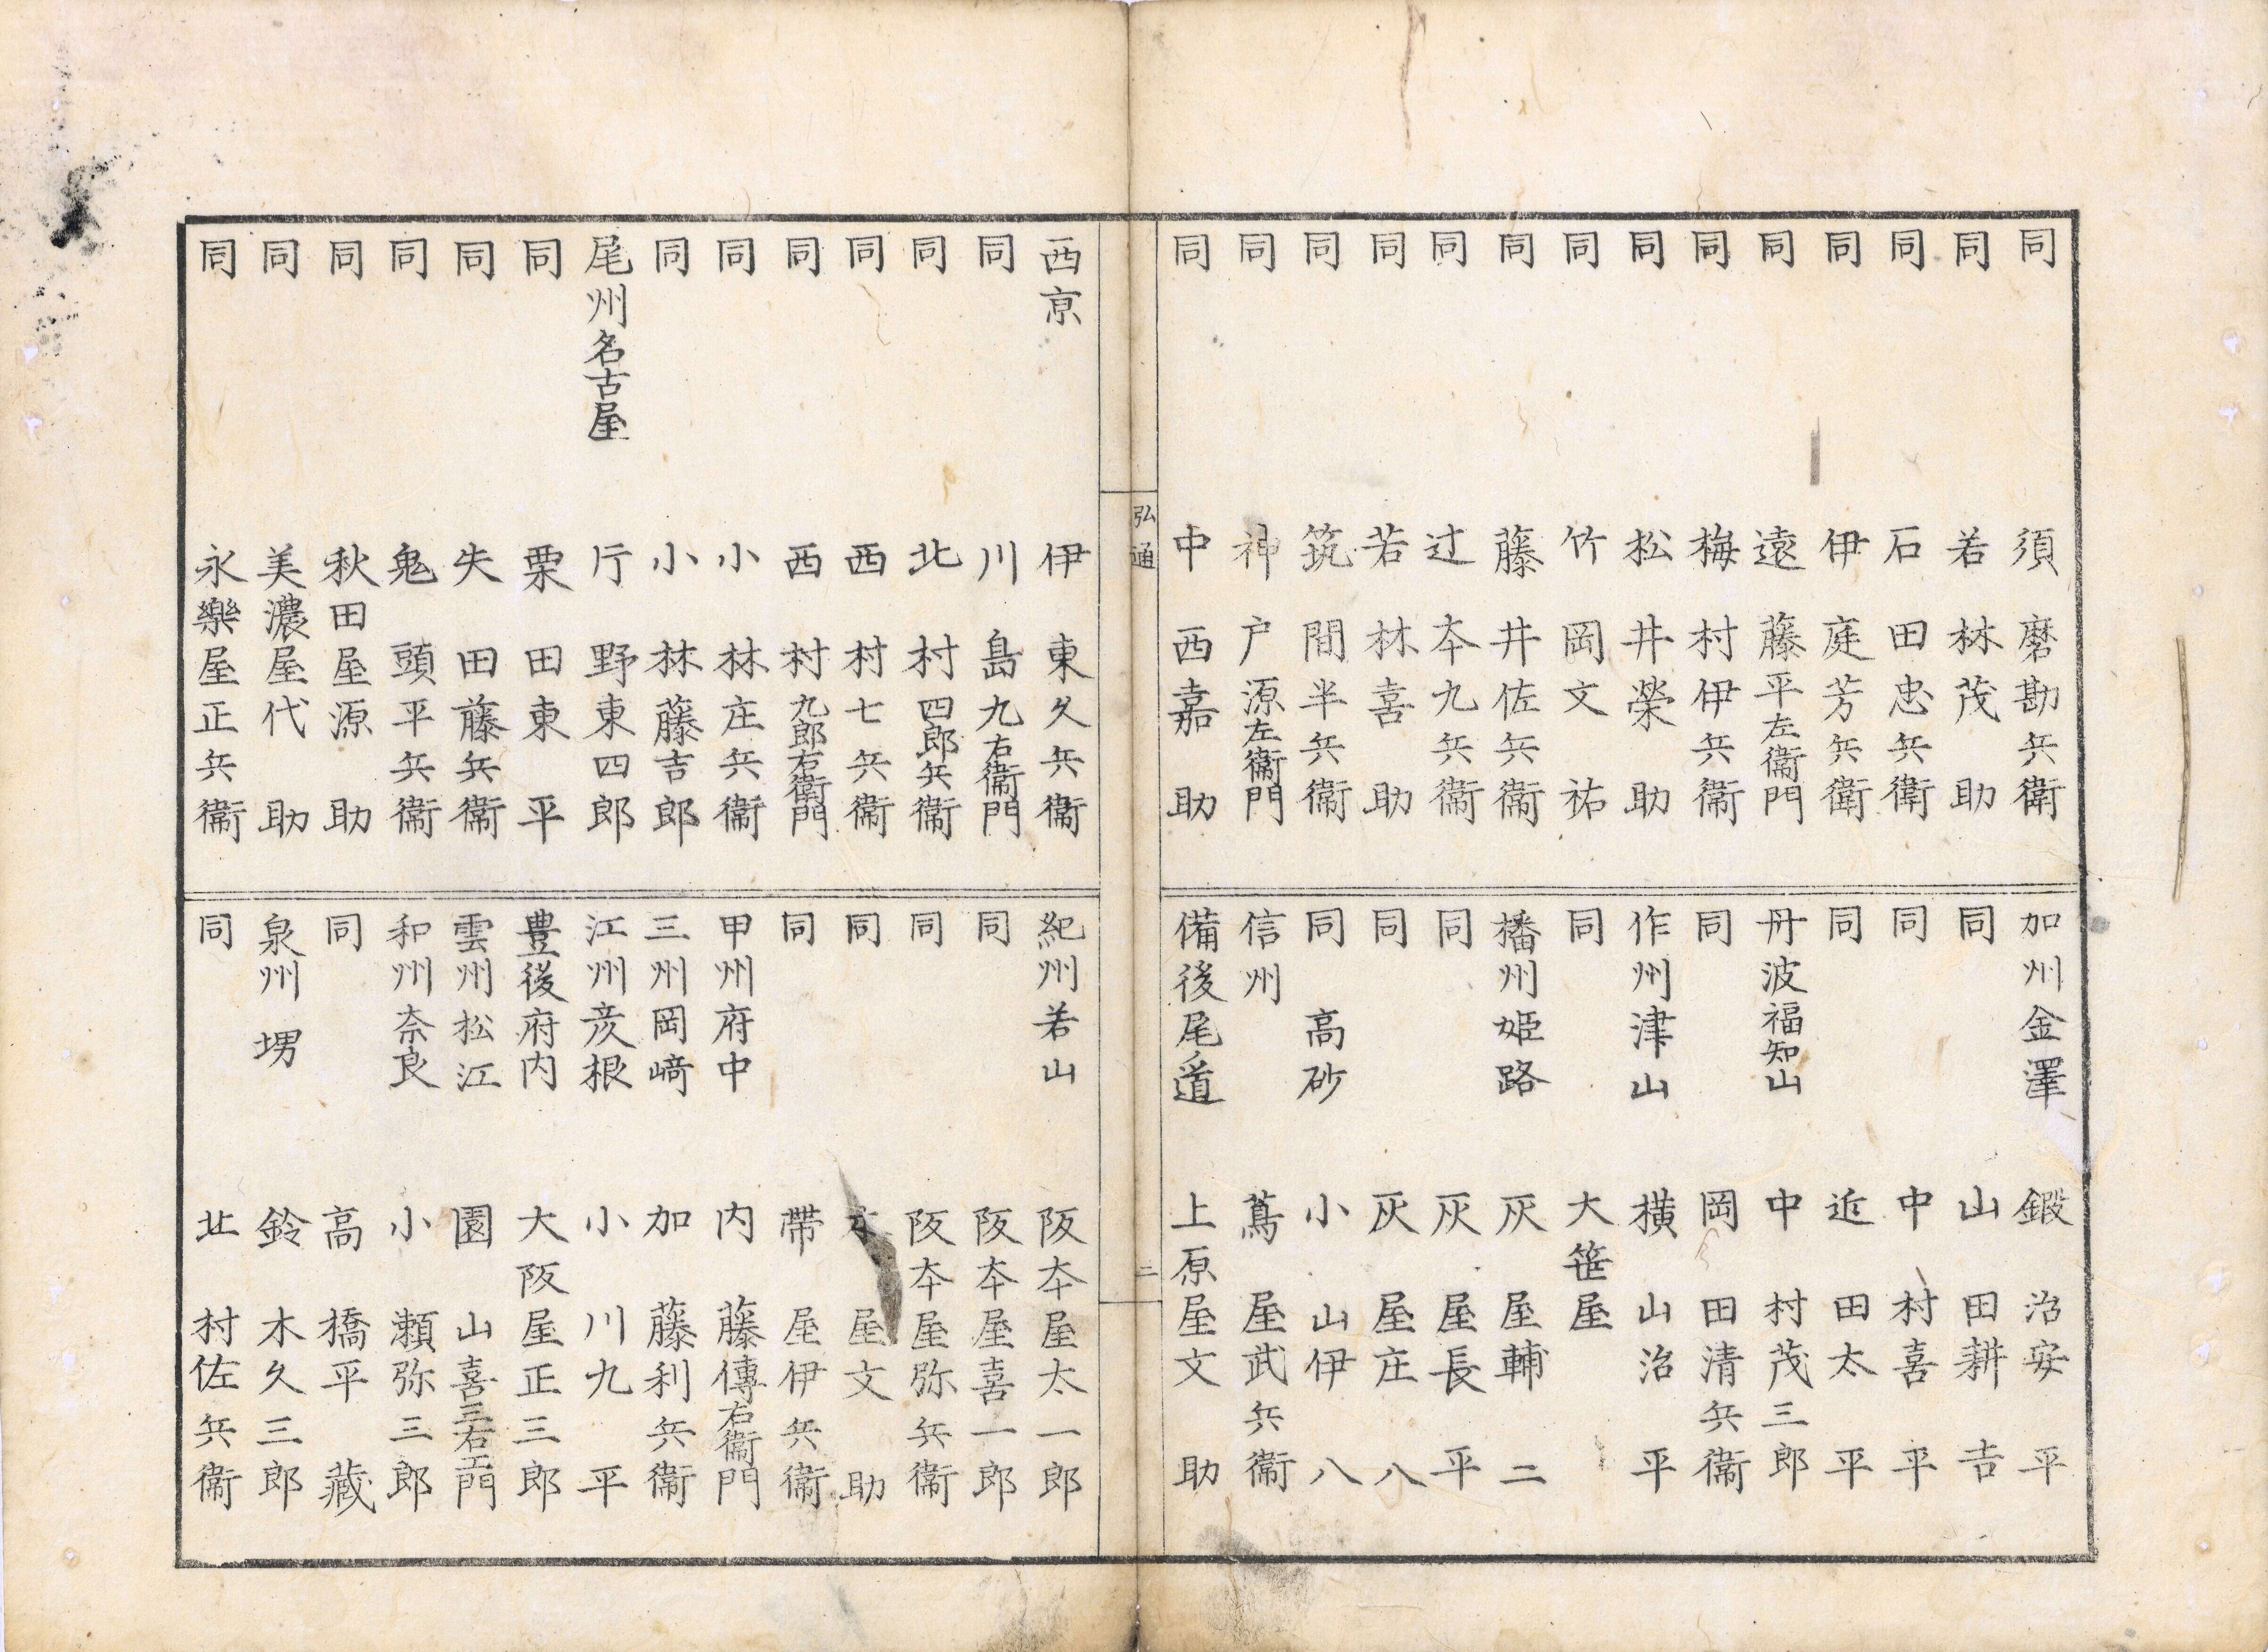 同 須磨勘兵衛
同 若林茂助
同 石田忠兵衛
同 伊庭芳兵衛
同 遠藤平左衞門
同 梅村伊兵衞
同 松井榮助
同 竹岡文祐
同 藤井佐兵衞
同 辻本九兵衞
同 若林喜助
同 筑間半兵衞
同 神戸源左衞門
同 中西嘉助
加州金澤 鍜治安平
同 山田耕吉
同 中村喜平
同 近田太平
丹波福知山 中村茂三郎
同 岡田清兵衞
作州津山 横山治平
同 大笹屋
播州姫路 灰屋輔二
同 灰屋長平
同 灰屋庄八
同高砂 小山伊八
信州 蔦屋武兵衞
備後尾道 上原屋文助
弘通 二
西京 伊東久兵衞
同 川島九右衞門
同 北村四郎兵衞
同 西村七兵衞
同 西村九郎右衞門
同 小林庄兵衞
同 小林藤吉郎
尾州名古屋 片野東四郎
同 栗田東平
同 矢田藤兵衞
同 鬼頭平兵衞
同 秋田屋源助
同 美濃屋代助
同 永樂屋正兵衞
紀州若山 阪本屋太一郎
同 阪本屋喜一郎
同 阪本屋弥兵衞
同 屋文助
同 帶屋伊兵衞
甲州府中 内藤傳右衞門
三州岡﨑 加藤利兵衞
江州彦根 小川九平
豊後府内 大阪屋正三郎
雲州松江 園山喜三右エ門
和州奈良 小瀬弥三郎
同 高橋平藏
泉州堺 鈴木久三郎
同 北村佐兵衞